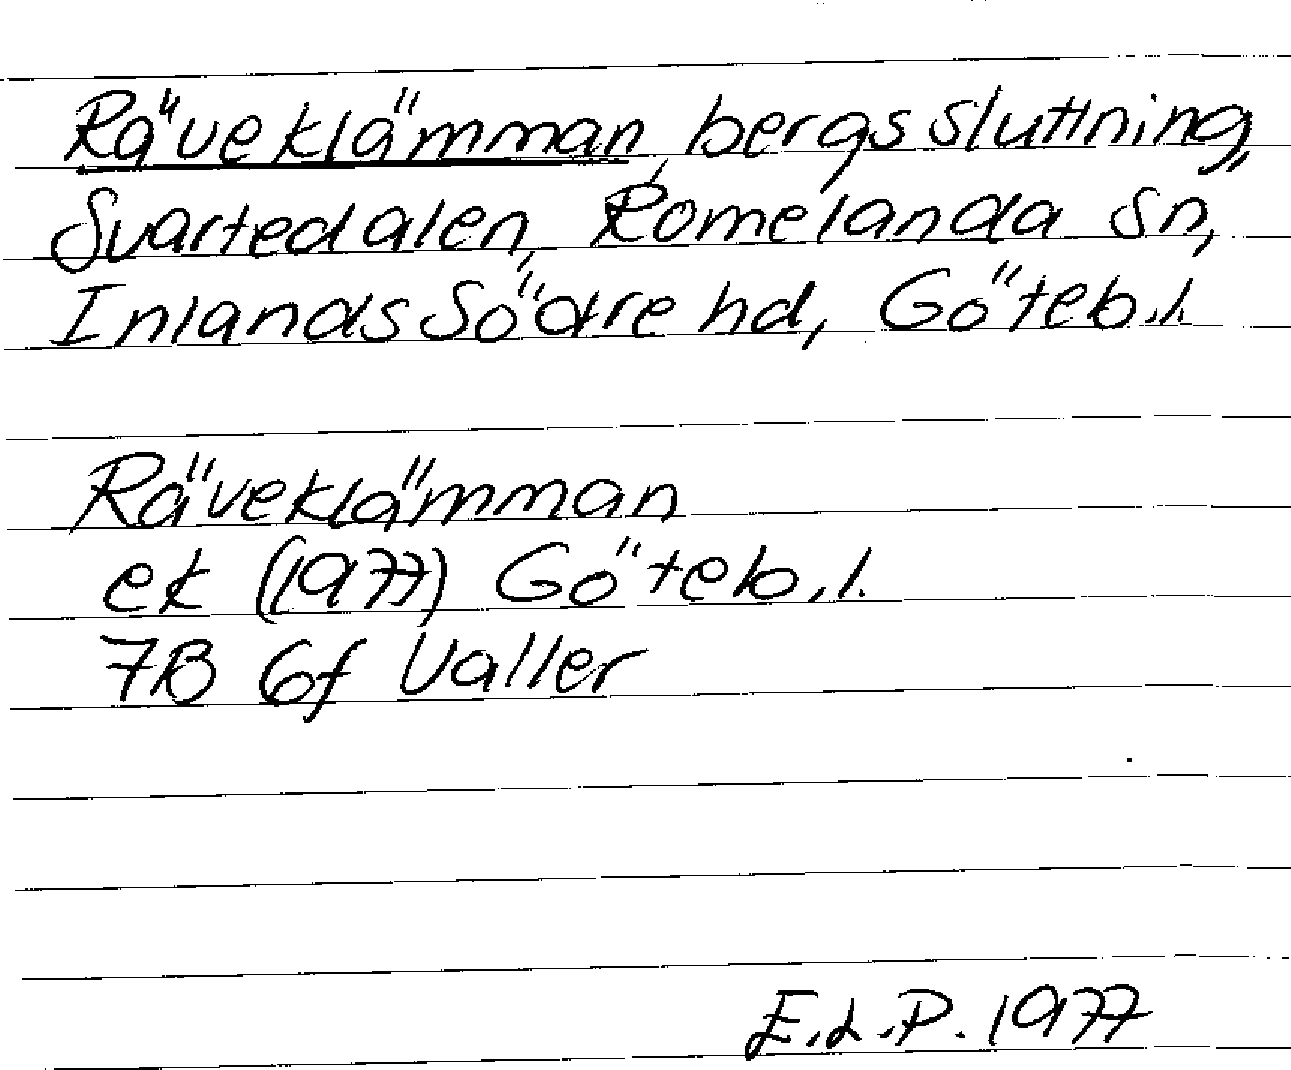 Räveklämman, bergssluttning,
Svartedalen, Romelanda Sn,
Inlands Södre hd, Göteb.l.
Räveklämman
ek (1977) Göteb.l.
7B 6f Valler
E.L.P. 1977